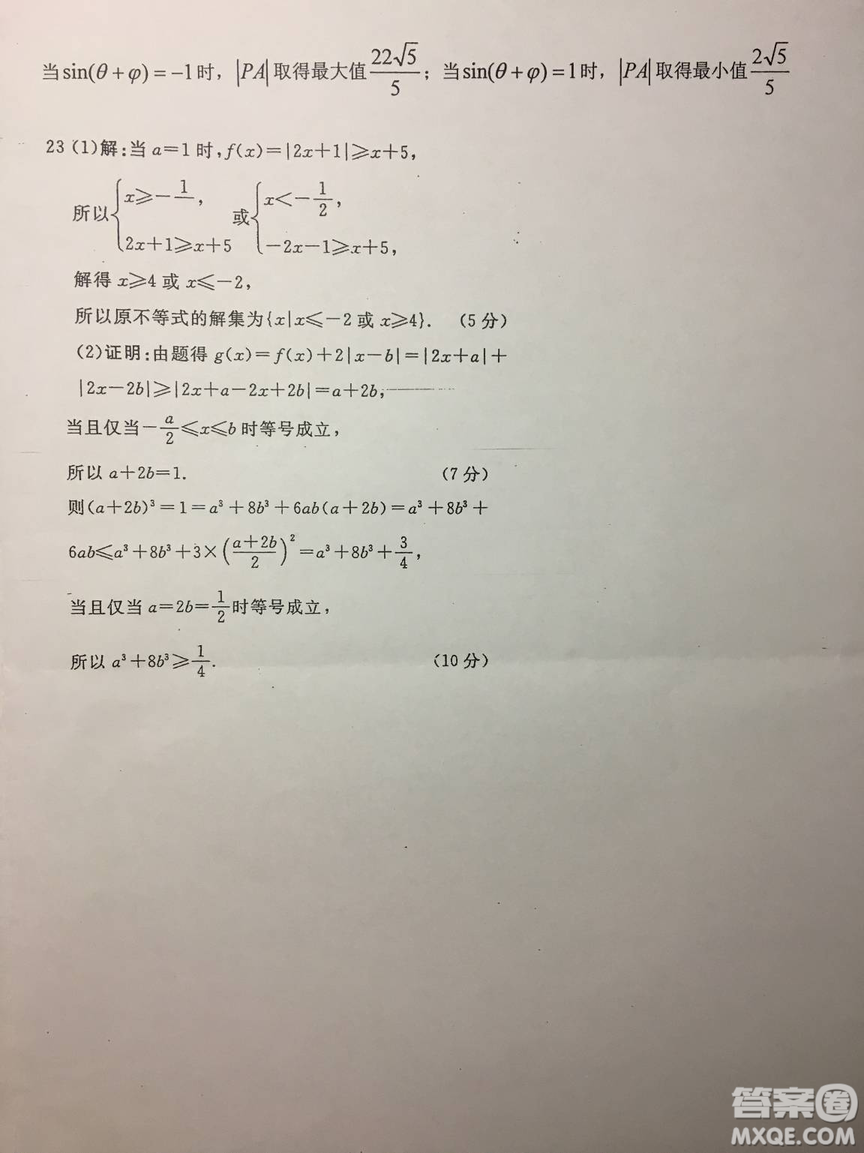 当sin(θ+φ)=-1时，|PA|取得最大值22√5/5；当sin(θ+φ)=1时，|PA|取得最小值2√5/5
23 (1)解:当a=1时,f(x)=|2x+1|≥x+5,
所以{x≥-1/ , 2x+1≥x+5 或{x<-1/2, -2x-1≥x+5,
解得x≥4或x≤-2,
所以原不等式的解集为{x|x≤-2或x≥4}. (5分)
(2)证明:由题得g(x)=f(x)+2|x-b|=|2x+a|+
|2x-2b|≥|2x+a-2x+2b|=a+2b,
当且仅当-a/2≤x≤b时等号成立,
所以a+2b=1. (7分)
则(a+2b)³=1=a³+8b³+6ab(a+2b)=a³+8b³+
6ab≤a³+8b³+3×((a+2b)/2)²=a³+8b³+3/4,
当且仅当a=2b=1/2时等号成立,
所以a³+8b³≥1/4. (10分)
答案圈
MXQE.COM